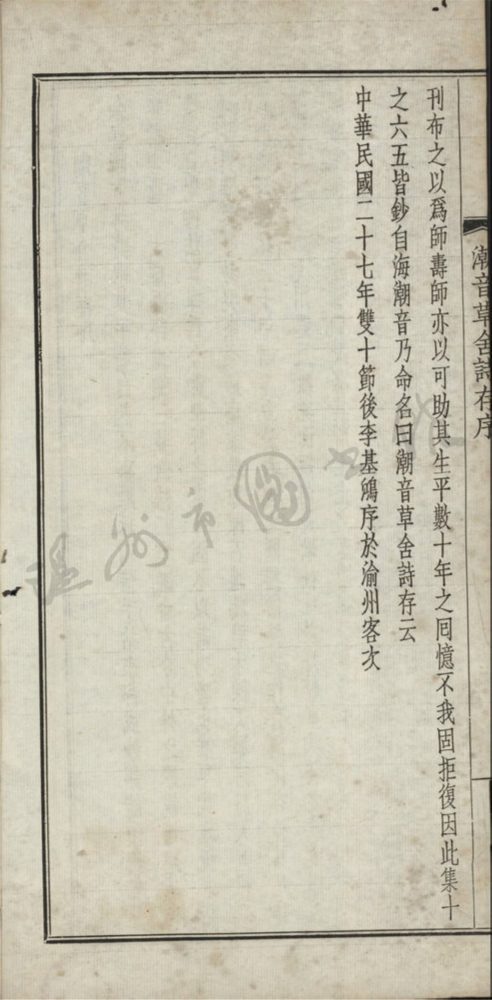 潮音草舍詩存序
刊布之以爲師壽師亦以可助其生平數十年之囘憶不我固拒復因此集十
之六五皆鈔自海潮音乃命名曰潮音草舍詩存云
中華民國二十七年雙十節後李基鴻序於渝州客次
溫州市圖書館